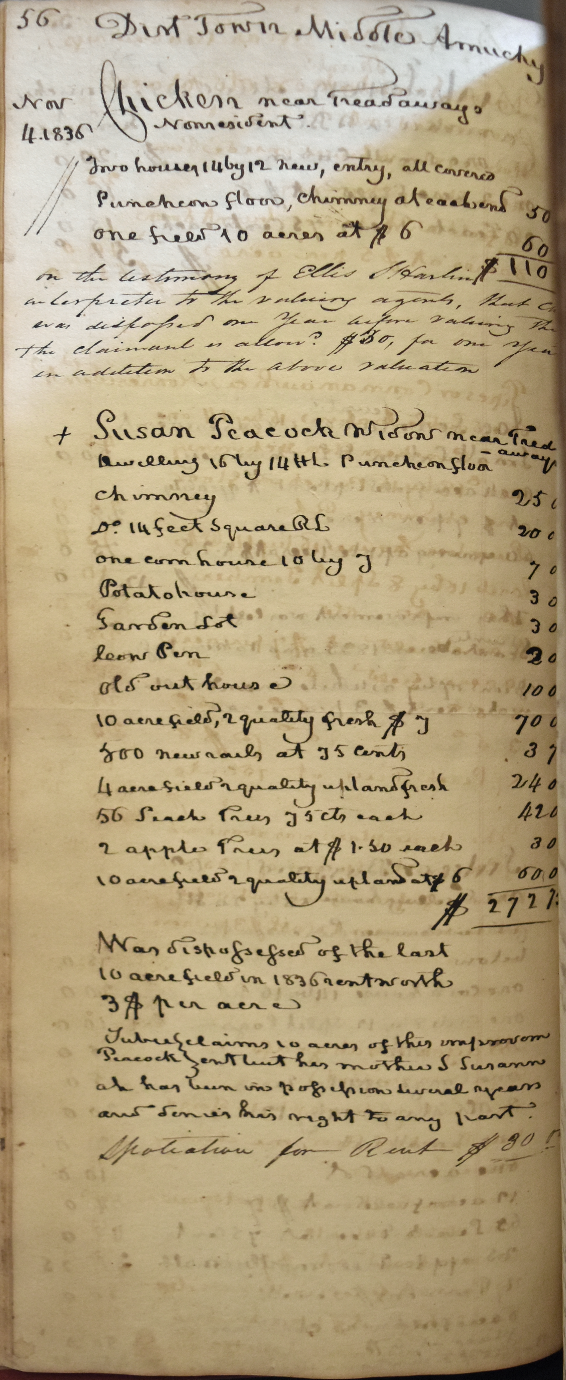 56 Dirt Town Middle Amuchy
Nov Chicken near Treadaways
4. 1836 Nonresident.
Two houses 14 by 12 new, entry, all covered
Puncheon floor, chimney at each end 50
one field 10 acres at $ 6 60
$ 110
on the testimony of Ellis S. Harlin
interpreter to the valuing agents, that
was dispossed one year before valuing the
the claimant is allowd. $30, for one year
in addition to the above valuation
+ Susan Peacock Widow near Tread
-aways
Dwelling 16 by 14 Puncheon floor
chimney 25 0
Do. 14 feet Square 20 0
one corn house 10 by 7 7 0
Potato house 3 0
Garden Lot 3 0
Cow Pen 2 0
old out house 10 0
10 acre field, 2 quality fresh $ 7 70 0
500 new rails at 75 cents 3 7
4 acre field 2 quality upland fresh 24 0
56 Peach Trees 75 cts each 42 0
2 apple Trees at $ 1.50 each 3 0
10 acre field 2 quality upland at $ 6 60 0
$ 272 7
Was dispossessed of the last
10 acre field in 1836 rent worth
3 $ per acre
claims 10 acres of this improvem
Peacock but his mother S Susann
ah has been in possession several years
and denies his right to any part.
Spoliation for Rent $ 30